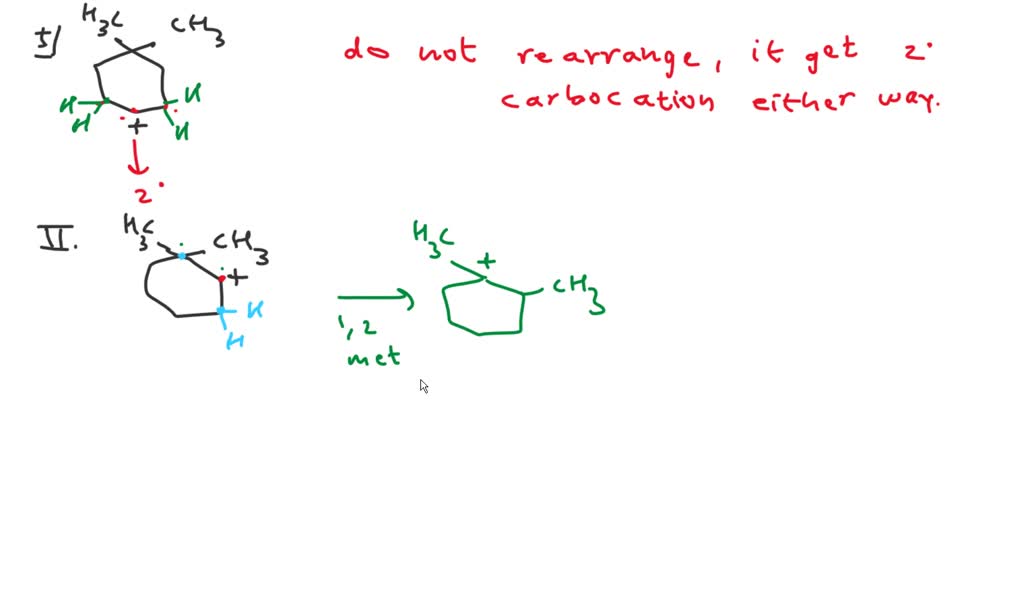 I)
H3C CH3
do not rearrange, it get 2°
carbocation either way.
H H
H + H
2°
II.
H3C CH3
+
H
H
1,2
met
H3C +
CH3